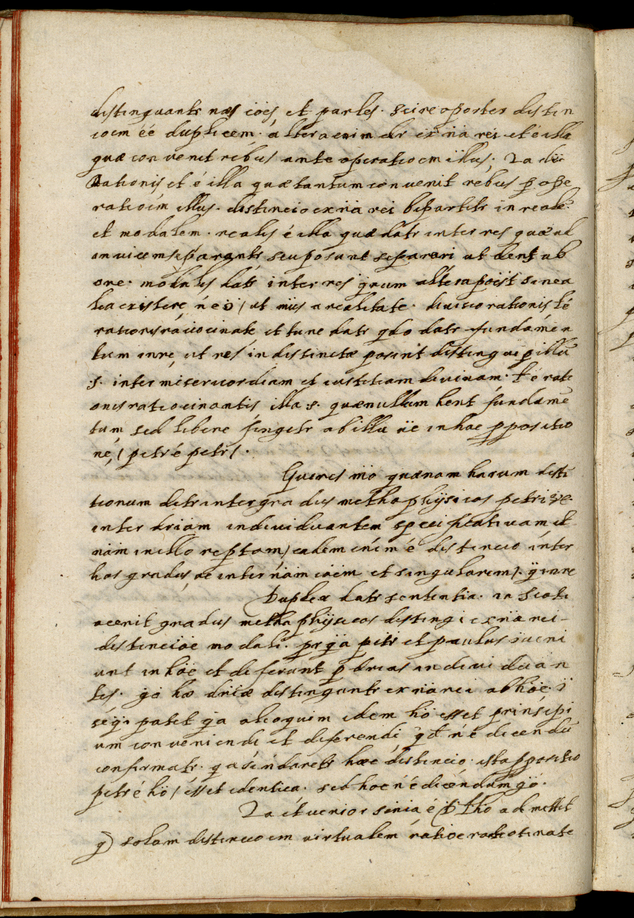 distinguantr næs cöes, et partes. Scire oportet distin
coem éé duplicem. altera enim dr ex na rei et é illa
quæ convenit rebus ante operatioem illus; 2a dr
Rationis et é illa quæ tantum convenit rebus p ope
ratioem illus. distincio ex na rei bipartitr in reale
et modalem. realis é illa quæ datr inter res quæ
seu possunt separari ut dent ab
one. modalis datr inter res quum altera potest sine a
lia existere ut a realitate. divicio rationis
rationis raciocinate et tunc datr qdo datr fundamen
tum in re, ut res indistinctæ possint distingui p illu
s. inter misericordiam et iustitiam divinam. rati
onis ratiocinantis illa s. quæ nullum hent fundame
tum sed libere fingitr ab illu üt in hac p positio
ne, (petr é petr).
Queres mo quænam harum disti
tionum detr inter gradus methaphysicos petri
inter driam individuantem specificativam et
nam in illo reptam, eadem enim é distincio inter
hos gradus ac inter nam cöem et singularem).
Duplex datr sententia. 1a Scoti
acerit gradus methaphysicos distingi ex na rei
distincioe modali. pr qa petr et paulus conveni
unt in höe et diferunt p drias individuan
tes. go hæ driæ distinguntr ex na rei ab höe.
seqr patet qa alioquim idem ho esset principi
um conveniendi et diferendi qd n é dicendu
confirmatr. qa si n daretr hæc distincio. ista ppositio
petr é ho, esset identica. sed hoc n é dicendum go.
2a et verior snia é D Tho admittit
solam distincioem virtualem ratioe ratiotinate